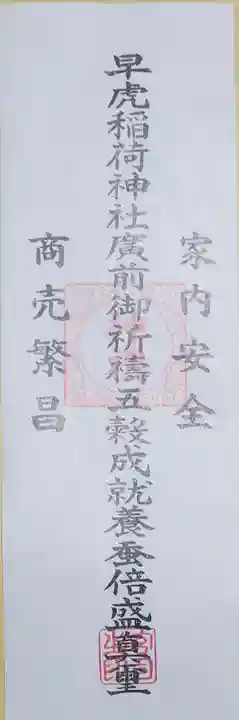 家内安全
早虎稲荷神社廣前御祈禱五穀成就養蚕倍盛真璽
商売繁昌